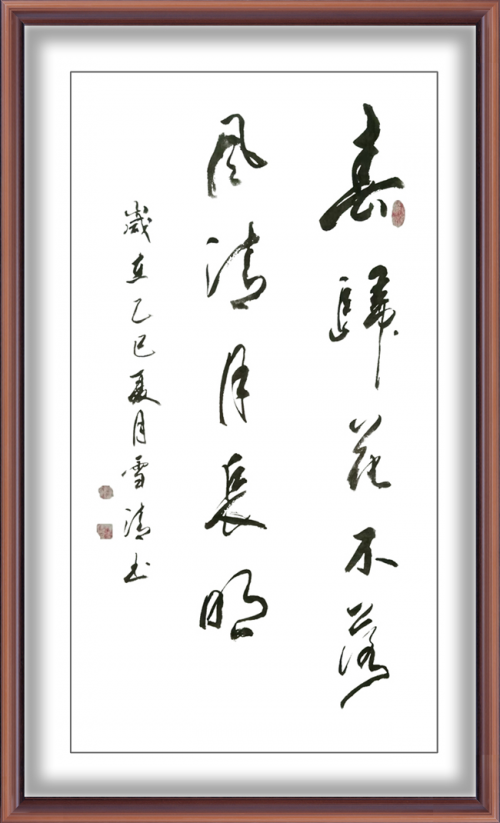 春歸花不落
風清月長明
歲在乙巳夏月雪清书